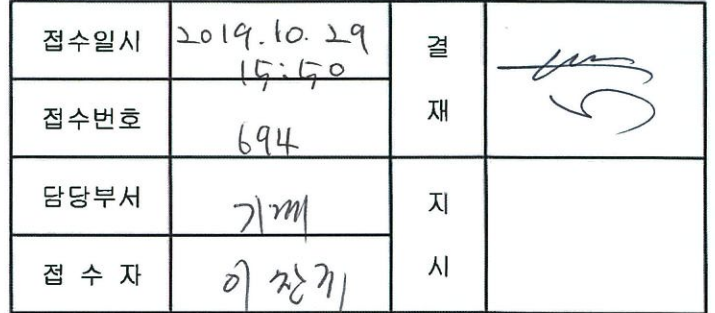 접수일시 2019.10.29 결
15:50
접수번호 694 재
담당부서 기계 지
접 수 자 이찬기 시